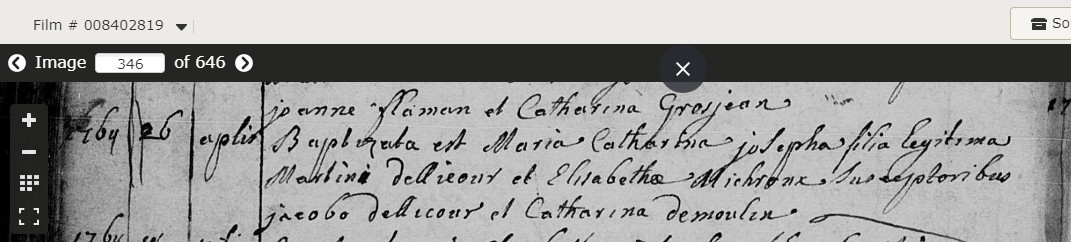 Film # 008402819
So
Image 346 of 646
joanne flaman et Catharina Grosjean
1764 26 aplis Baptizata est Maria Catharina josepha filia legitima
Martini dellicour et Elisabethæ Michronx susceptoribus
jacobo dellicour et Catharina demoulin
1764